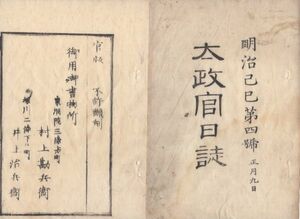 明治己巳第四號 正月九日
太政官日誌
官版 不許翻刻
御用御書物所
東洞院三條上町
村上勘兵衛
堀川二條下ル町
井上治兵衛